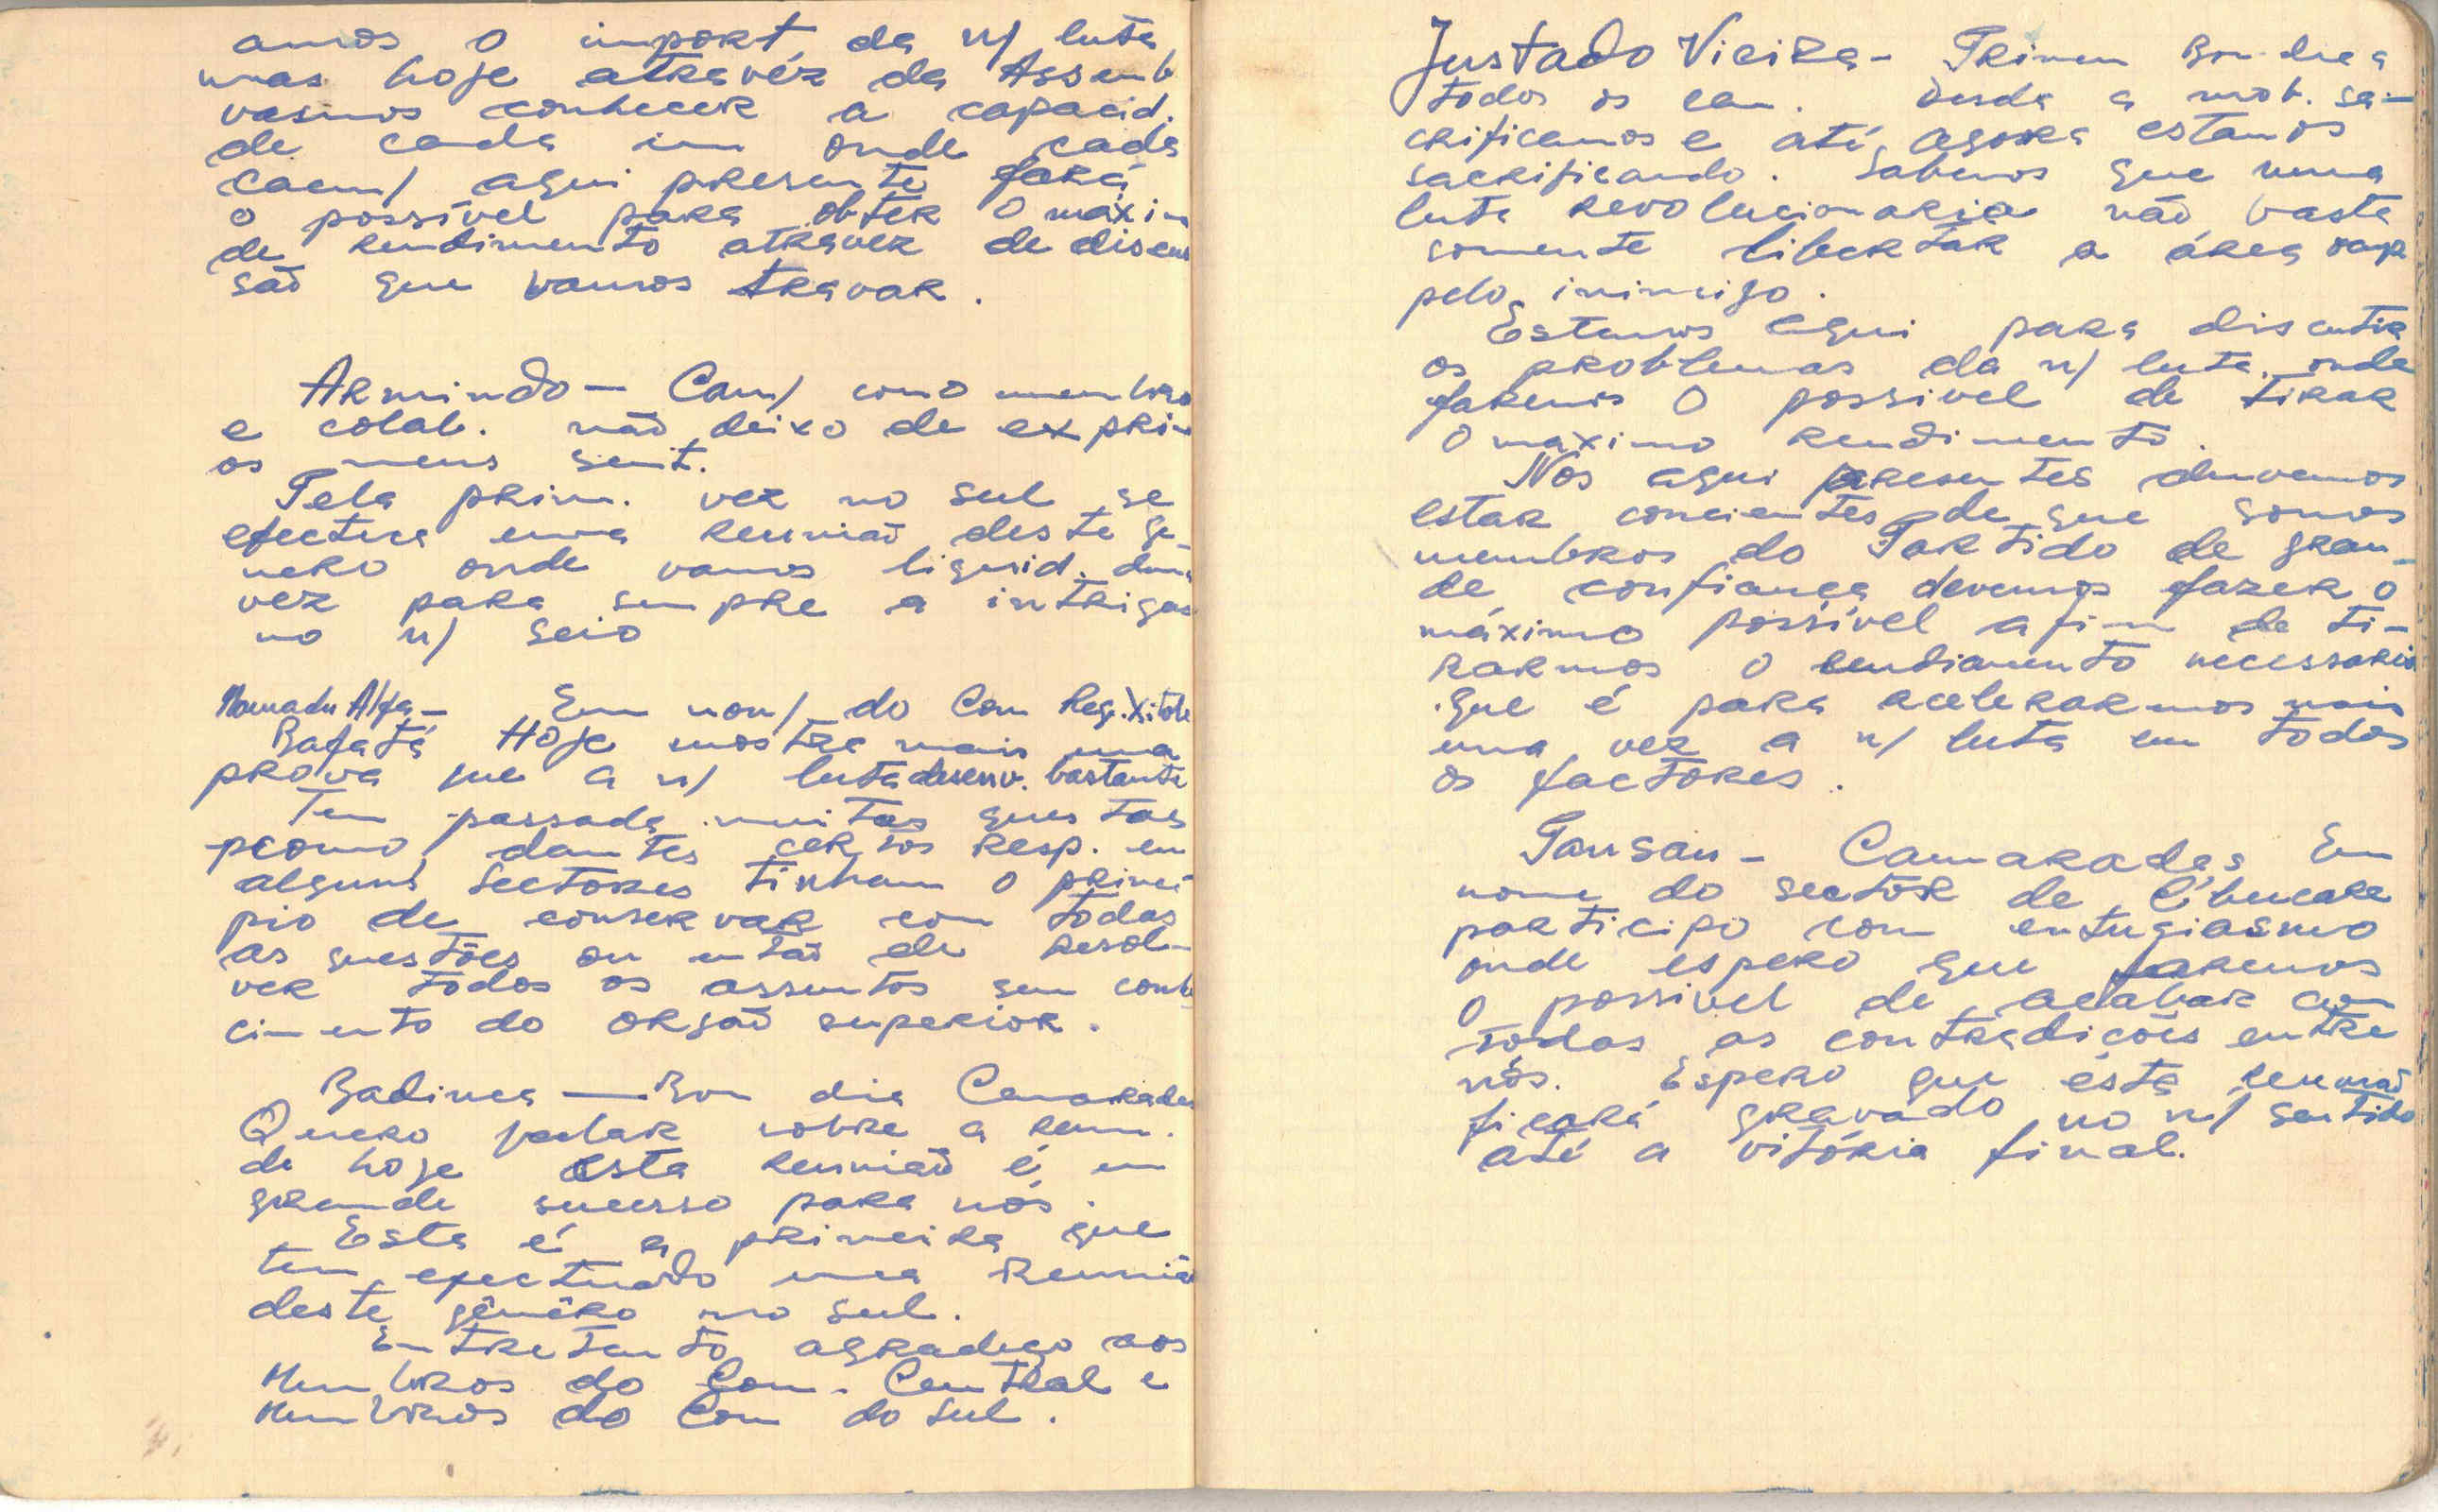 amos o import. da n/ luta
mas hoje atravéz da Assemb
vasmos conhecer a capacid.
de cada um onde cada
cam/ aqui presente fará
o possível para obter o máxim
de rendimento atravez de discus
são que vamos travar.
Armindo — Cam/ como membro
e colab. não deixo de exprim
os meus sent.
Pela prim. vez no sul se
efectua uma reunião deste ge-
nero onde vamos liquid. duma
vez para sempre a intrigas
no n/ seio
Mamadu Alfa — Em nom/ do Com Reg. Xitole
Bafatá Hoje mostra mais uma
prova que a n/ luta desenv. bastante
Tem passada muitas questas
como dantes certos resp. em
alguns sectores tinham o princi
pio de conservar com todas
as questões ou então de resol-
ver todos os assuntos sem conhe
cimento do orgão superior.
Badinca — Bom dia Camarades
Quero falar sobre a reun.
de hoje esta reunião é um
grande sucesso para nós.
Esta é a primeira que
tem efectuado uma Reunião
deste gênêro no sul.
Entretento agradeço aos
Membros do Com. Central e
Membros do Com do sul.
Justado Vieira - Primem Bon dia a
todos os cam. Desde a mob. sa-
crificamos e até agora estamos
sacrificando. Sabemos que numa
luta revolucionaria não basta
somente libertar a área ocup
pelo inimigo.
Estamos aqui para discutir
os problemas da n/ luta, onde
faremos o possivel de tirar
o máximo rendimento.
Nos aqui presentes devemos
estar concientes de que somos
membros do Partido de gran-
de confiança devemos fazer o
máximo possível afim de ti-
rarmos o rendiamento necessario
que é para acelerarmos mais
uma vez a n/ luta em todos
os factores.
Sansau - Camarades, Em
nome do sector de Cubucare
participo com entusiasmo
onde espero que faremos
o possivel de acabar com
todas as contradições entre
nós. Espero que ésta reunião
ficará gravado no n/ sentido
até a vitória final.